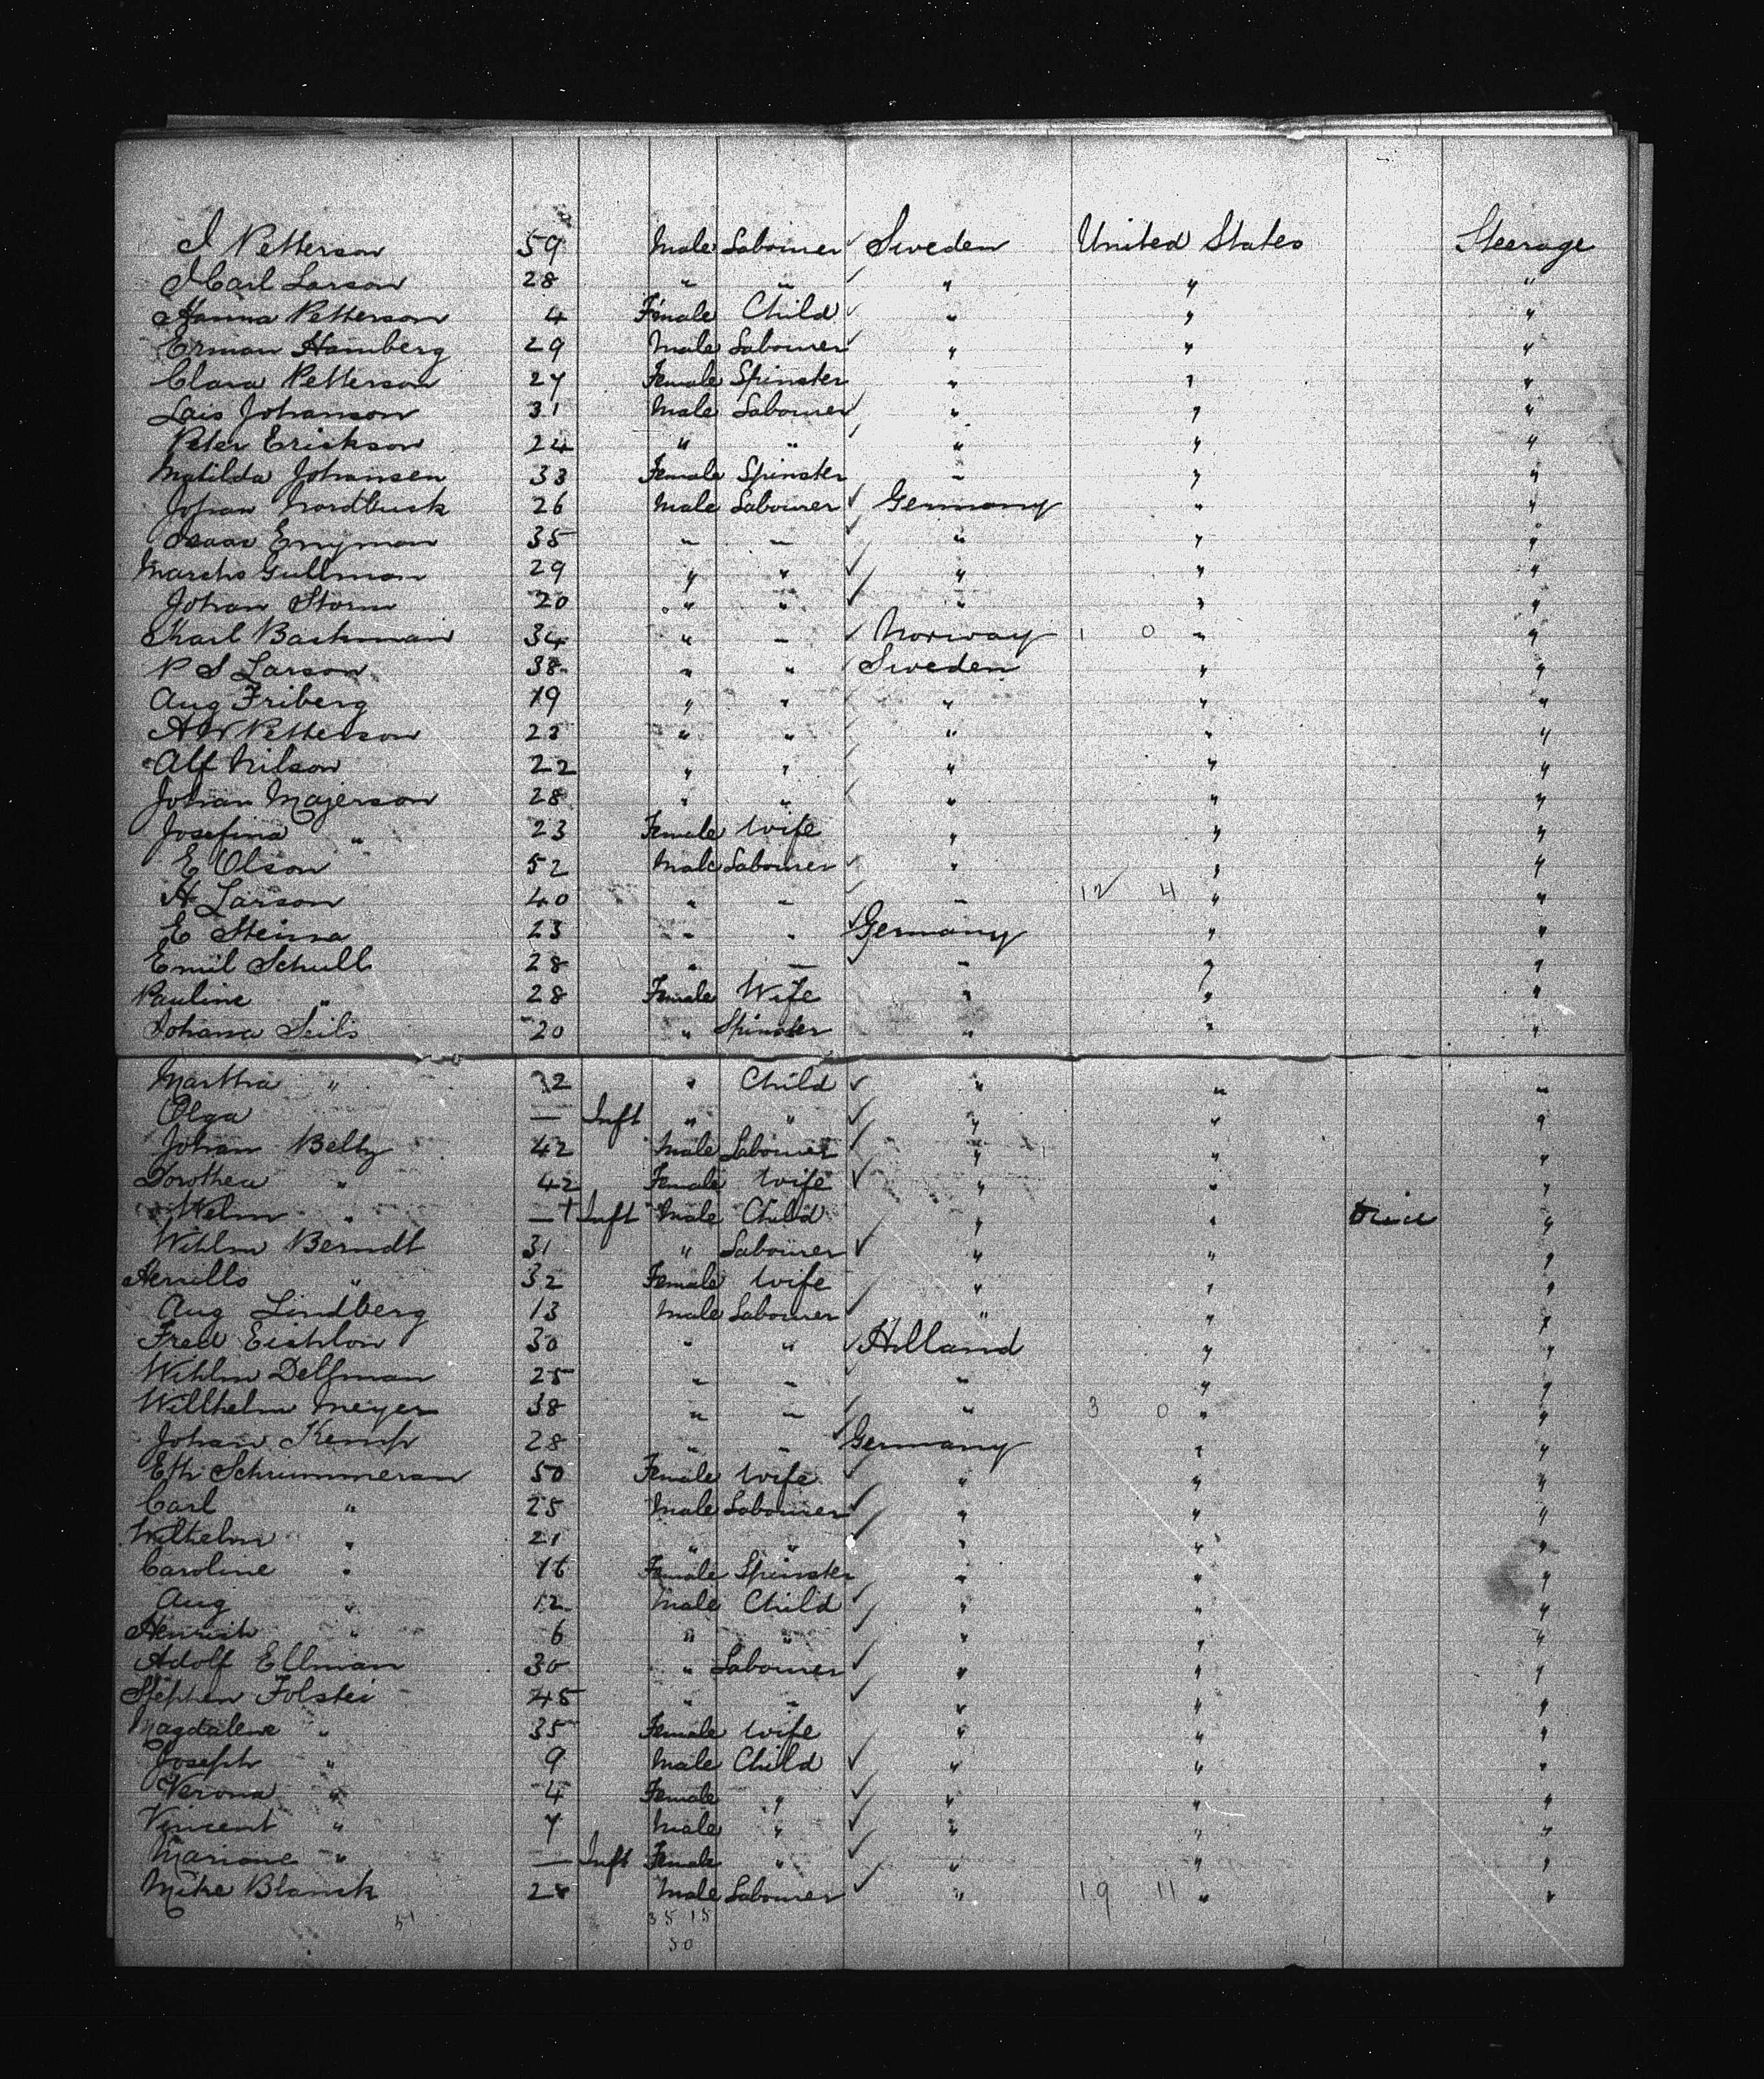 I Petterson 59 Male Labourer Sweden United States Steerage
Carl Larson 28 " " " " "
Hanna Petterson 4 Female Child " " "
Erman Hamberg 29 Male Labourer " " "
Clara Petterson 27 Female Spinster " " "
Lais Johanson 31 Male Labourer " " "
Peter Erickson 24 " " " " "
Matilda Johansen 33 Female Spinster " " "
Johan Nordbusk 26 Male Labourer Germany " "
Enyman 35 " " " " "
Marcho Gullman 29 " " " " "
Johan Storm 20 " " " " "
Karl Backman 34 " " Norway 1 0 " "
P S Larson 38 " " Sweden " "
Aug Friberg 19 " " " " "
A W Petterson 22 " " " " "
Alf Nilson 22 " " " " "
Johan Majerson 28 " " " " "
Josefina " 23 Female Wife " " "
E Olson 52 Male Labourer " " "
A Larson 40 " " " 12 4 " "
E Steima 23 " " Germany " "
Emil Schull 28 " " " " "
Pauline " 28 Female Wife " " "
Johana Seils 20 " Spinster " " "
Martha " 2 " Child " " "
Olga — Inft " " " " "
Johan Beltz 42 Male Labourer " " "
Dorothea " 42 Female Wife " " "
Welm " — Inft Male Child " " "
Wihlm Berndt 31 " Labourer " " "
" 32 Female Wife " " "
Aug Lindberg 13 Male Labourer " " "
Fred Eichlon 30 " " Holland " "
Wihlm Delfman 25 " " " " "
Willhelm Meyer 38 " " " 3 0 " "
Johan Kemp 28 " " Germany " "
Eth Schrummeran 50 Female Wife " " "
Carl " 25 Male Labourer " " "
Wilhelm " 21 " " " " "
Caroline " 16 Female Spinster " " "
Aug " 12 Male Child " " "
Henrich " 6 " " " " "
Adolf Ellman 30 " Labourer " " "
Stephen Folstei 45 " " " " "
Magdalene " 35 Female Wife " " "
Joseph " 9 Male Child " " "
Verona " 4 Female " " " "
Vincent " 7 Male " " " "
Marione " — Inft Female " " " "
Mike Blanck 28 Male Labourer " 19 11 " "
51 35 15
50